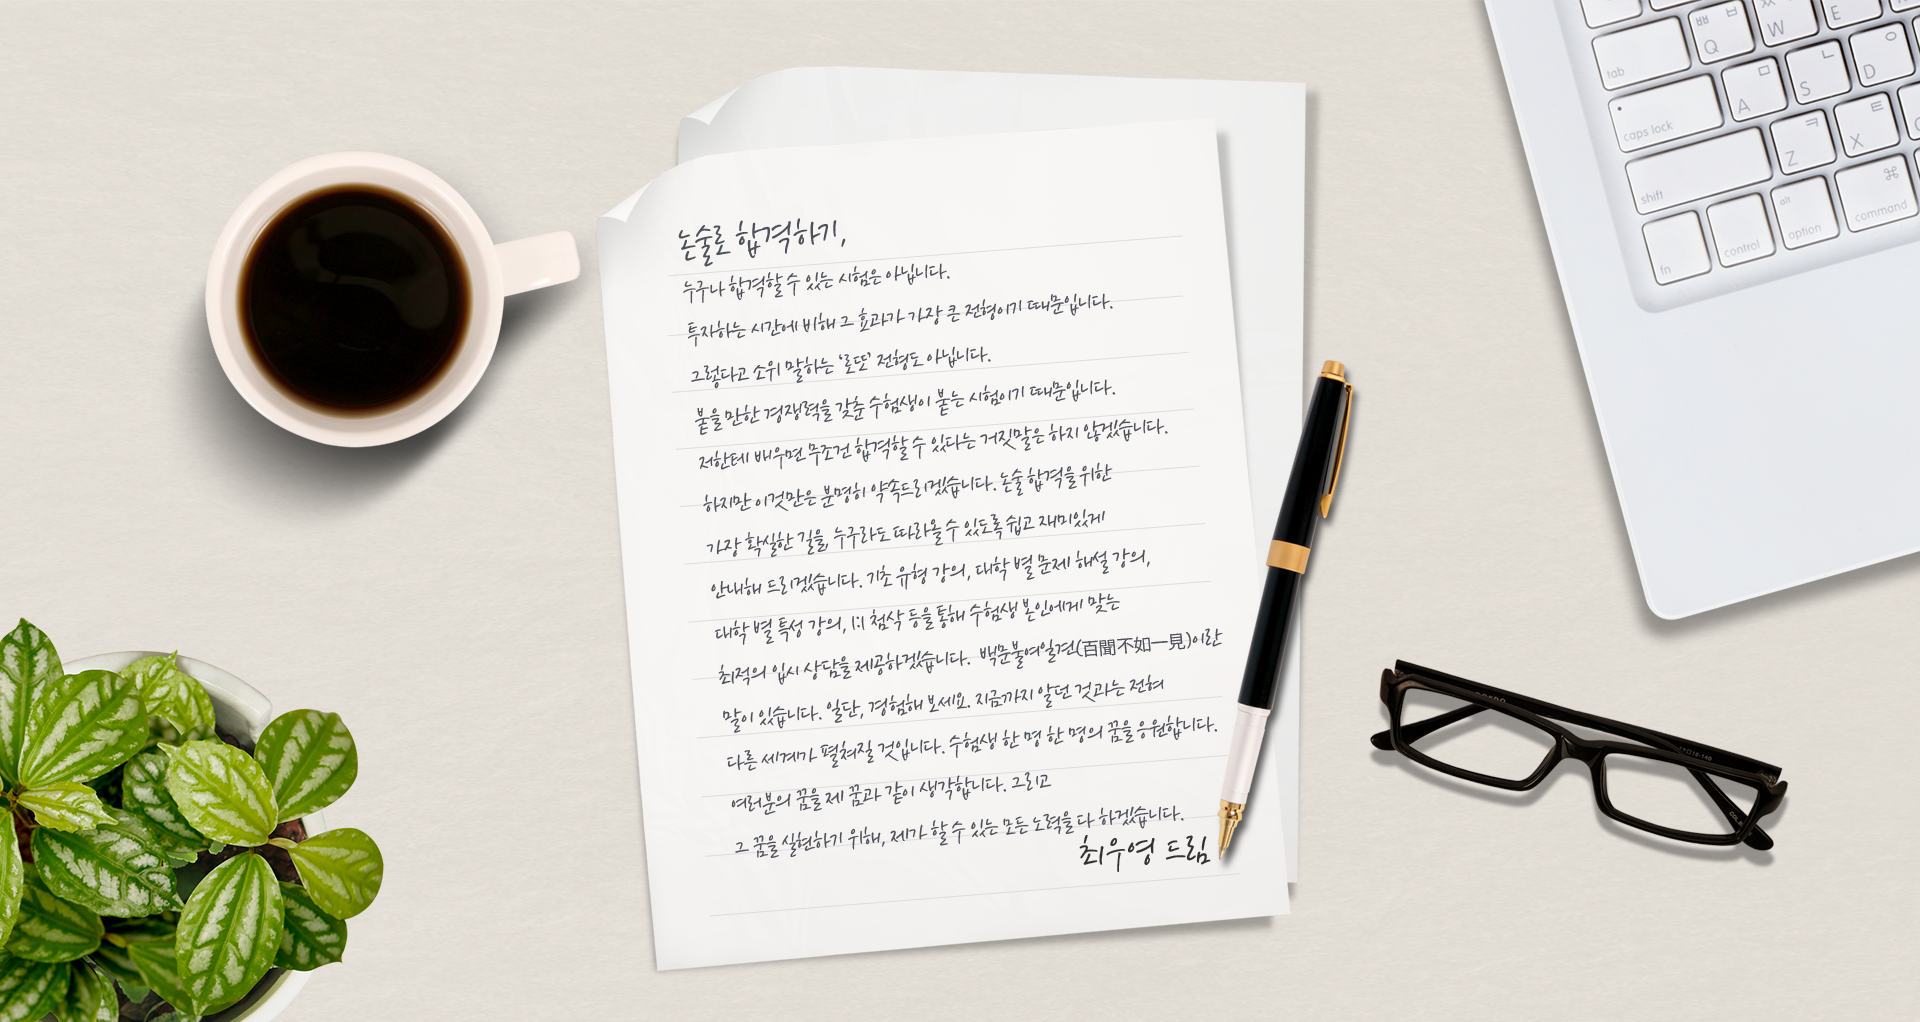 논술로 합격하기,
누구나 합격할 수 있는 시험은 아닙니다.
투자하는 시간에 비해 그 효과가 가장 큰 전형이기 때문입니다.
그렇다고 소위 말하는 '로또' 전형도 아닙니다.
붙을 만한 경쟁력을 갖춘 수험생이 붙는 시험이기 때문입니다.
저한테 배우면 무조건 합격할 수 있다는 거짓말은 하지 않겠습니다.
하지만 이것만은 분명히 약속드리겠습니다. 논술 합격을 위한
가장 확실한 길을, 누구라도 따라올 수 있도록 쉽고 재미있게
안내해 드리겠습니다. 기초 유형 강의, 대학 별 문제 해설 강의,
대학 별 특성 강의, 1:1 첨삭 등을 통해 수험생 본인에게 맞는
최적의 입시 상담을 제공하겠습니다. 백문불여일견(百聞不如一見)이란
말이 있습니다. 일단, 경험해 보세요. 지금까지 알던 것과는 전혀
다른 세계가 펼쳐질 것입니다. 수험생 한 명 한 명의 꿈을 응원합니다.
여러분의 꿈을 제 꿈과 같이 생각합니다. 그리고
그 꿈을 실현하기 위해, 제가 할 수 있는 모든 노력을 다 하겠습니다.
최우영 드림
ㅃ ㅂ Q ㅉ W E
tab
ㅁ A ㄴ S ㅇ D
caps lock
ㅋ Z ㅌ X
shift
fn control alt option ⌘ command